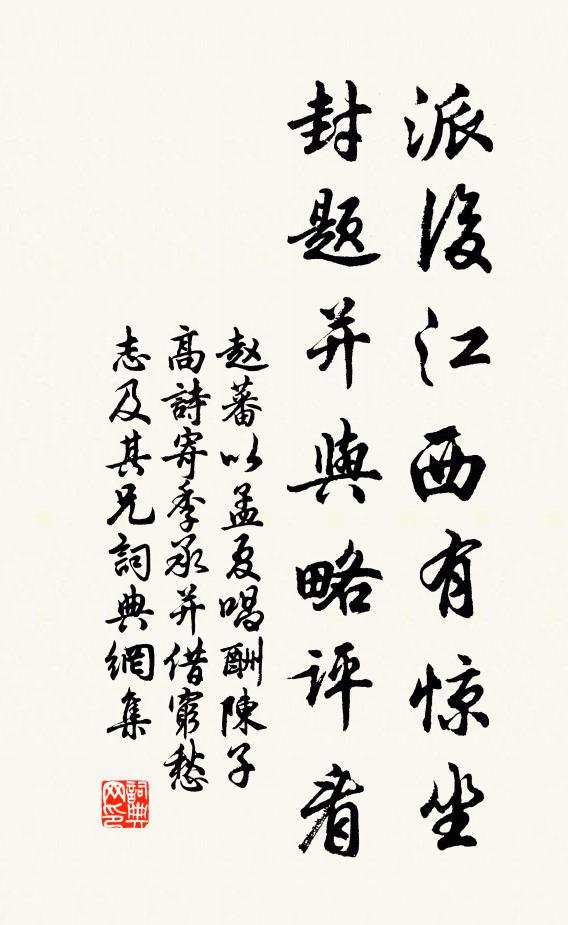 派後江西有惊坐
封题并與略评看
赵蕃以孟夏唱酬陳子
高詩寄季承并借窮愁
志及其兄詞典網集
詞典网印